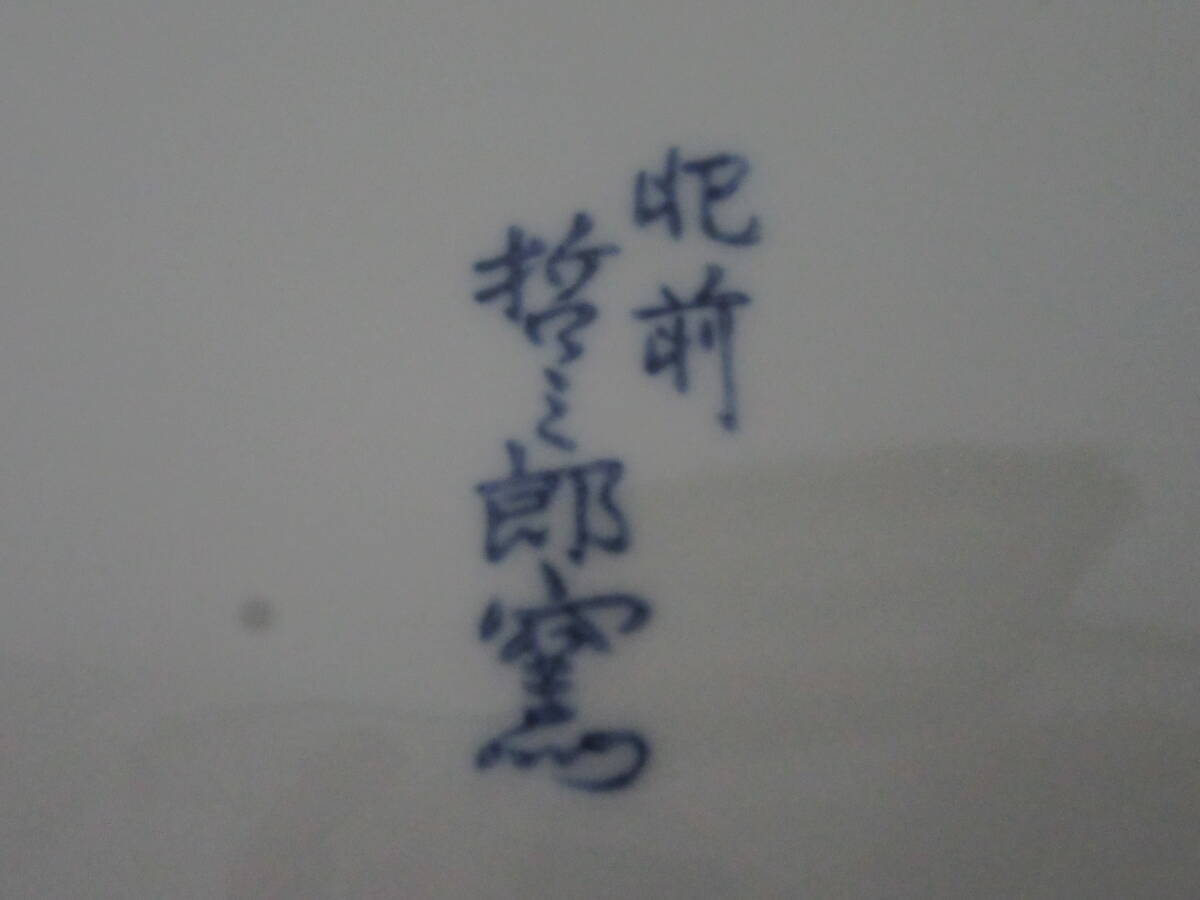 肥前
哲三郎窯